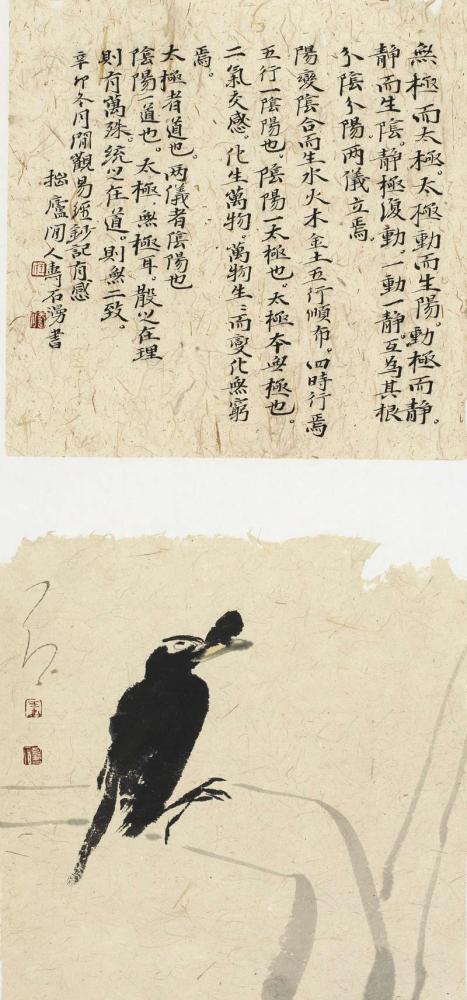 無極而太極。太極動而生陽。動極而静。
静而生陰。静極復動。一動一静。互為其根
分陰分陽。两儀立焉。
陽變陰合而生水火木金土五行順布。四時行焉
五行一陰陽也。陰陽一太極也。太極本無極也。
二氣交感。化生萬物。萬物生〻而變化無窮
焉。
太極者道也。两儀者陰陽也
陰陽一道也。太極無極耳。散之在理
則有萬殊。統之在道。則無二致。
辛卯冬月閒觀易經鈔記有感
拙廬閒人專石湧書